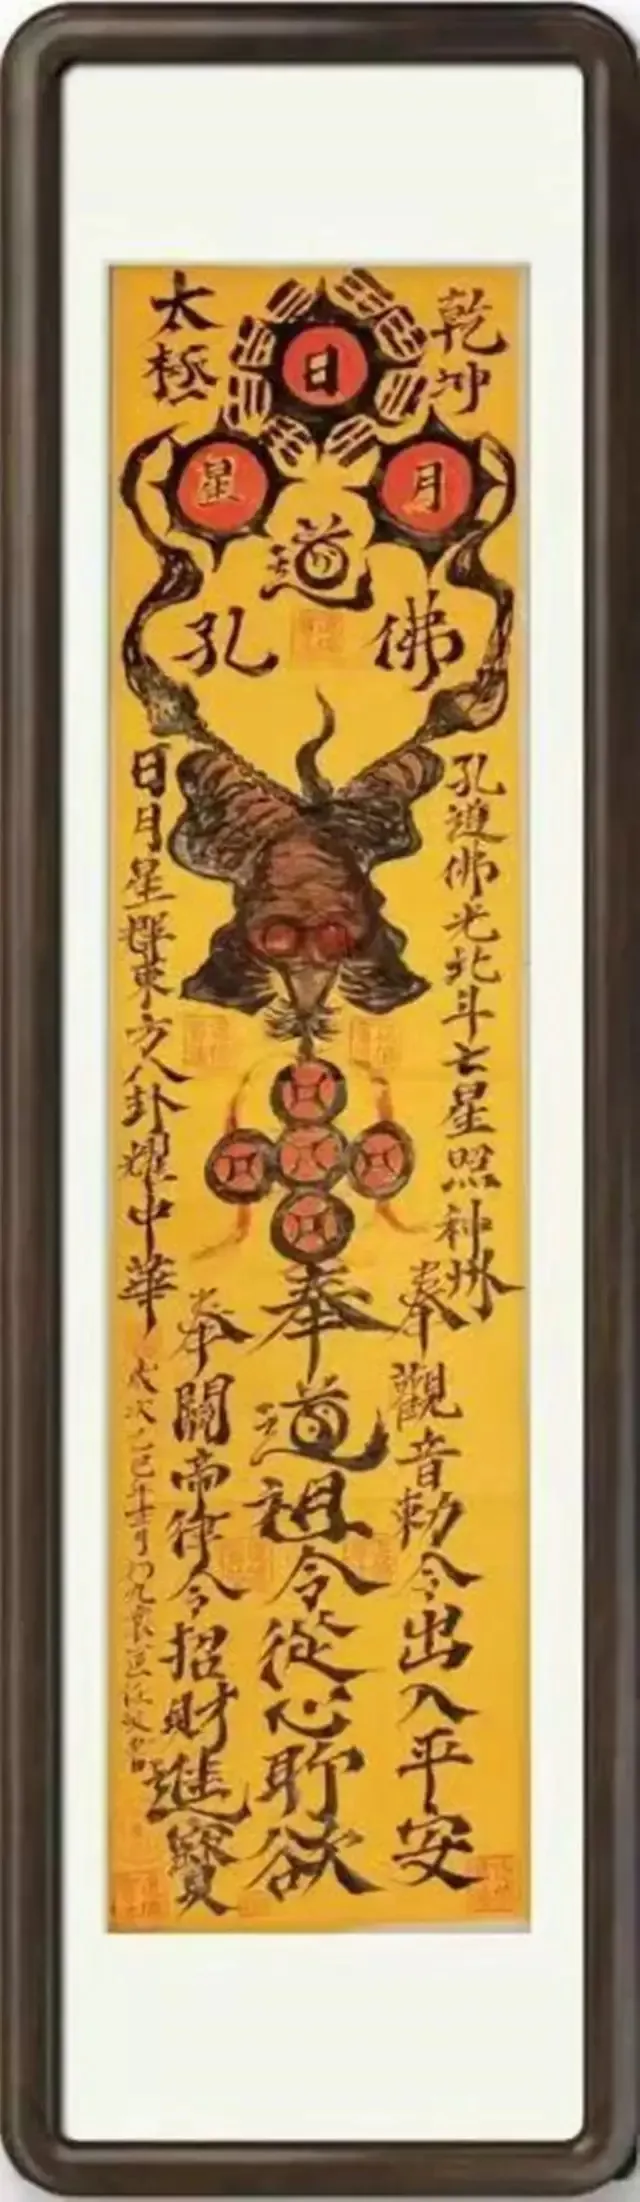 乾坤
太極
日
月
星
道
佛
孔
孔道佛光北斗七星照神州
日月星輝東方八卦耀中華
奉觀音勅令出入平安
奉道祖令從心所欲
奉關帝律令招財進寶
歲次乙巳年 月初九